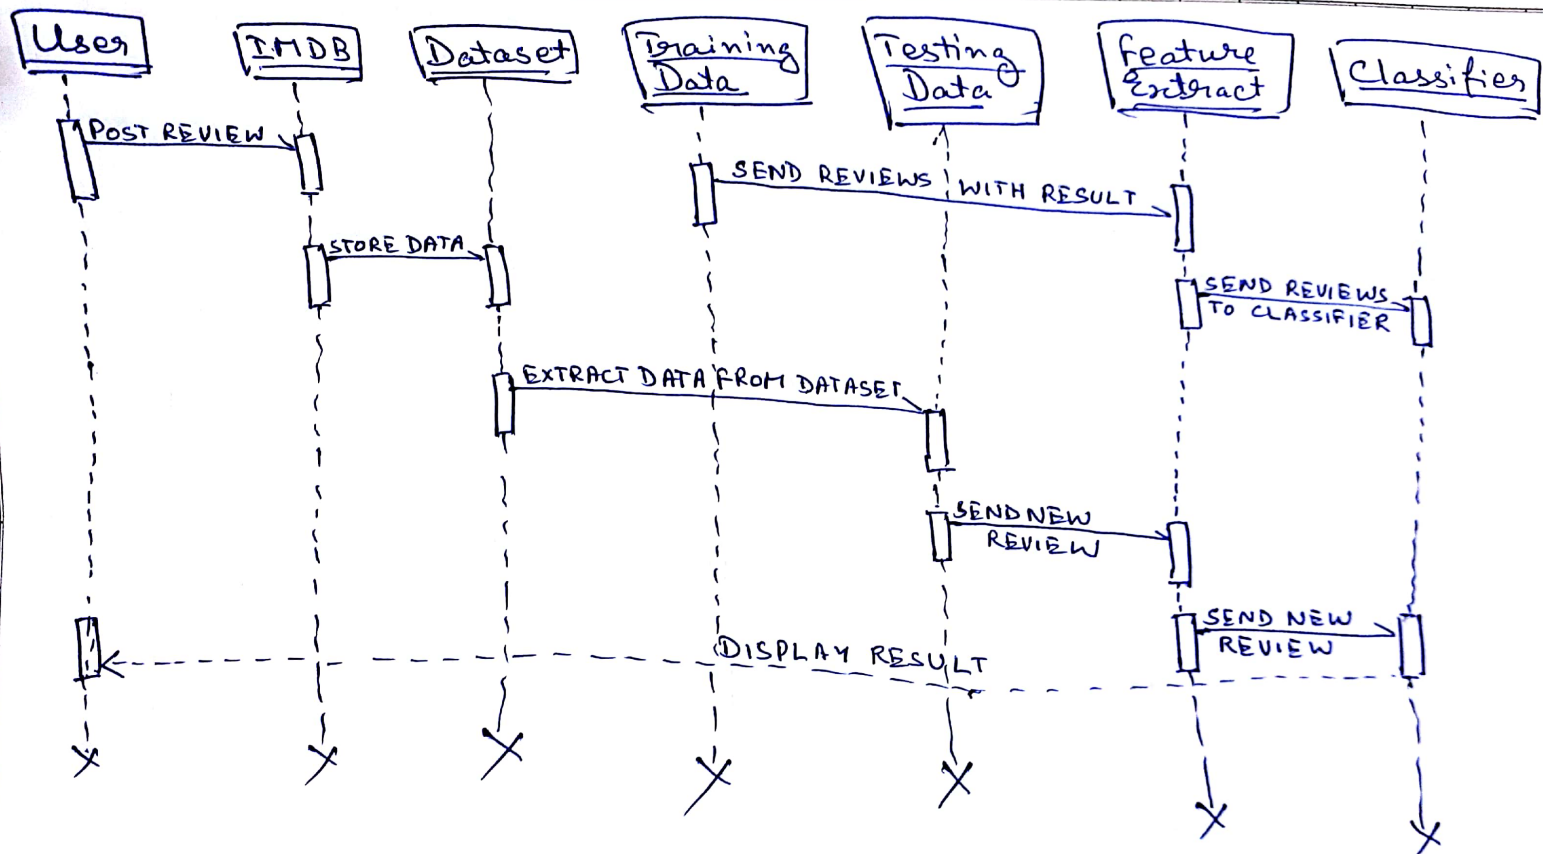 User
IMDB
Dataset
Training
Data
Testing
Data
Feature
Extract
Classifier
POST REVIEW
SEND REVIEWS WITH RESULT
STORE DATA
SEND REVIEWS
TO CLASSIFIER
EXTRACT DATA FROM DATASET
SEND NEW
REVIEW
SEND NEW
REVIEW
DISPLAY RESULT